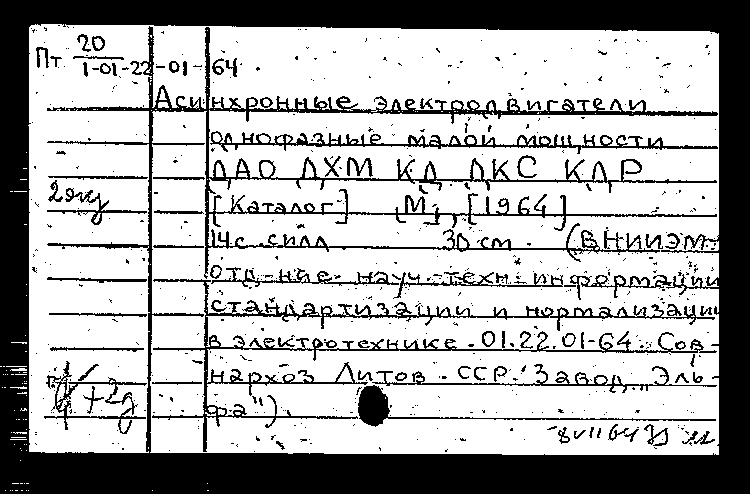 Пт 20
1-01-22-01-64
Асинхронные электродвигатели
однофазные малой мощности
ДАО ДХМ КД ДКС КДР
2 экз
[Каталог] [М], [1964]
14 с илл. 30 см. (ВНИИЭМ-
отд-ние науч-техн информации
стандартизации и нормализации
в электротехнике. 01.22.01-64. Сов-
нархоз Литов. ССР. Завод „Эль-
+2д
фа").